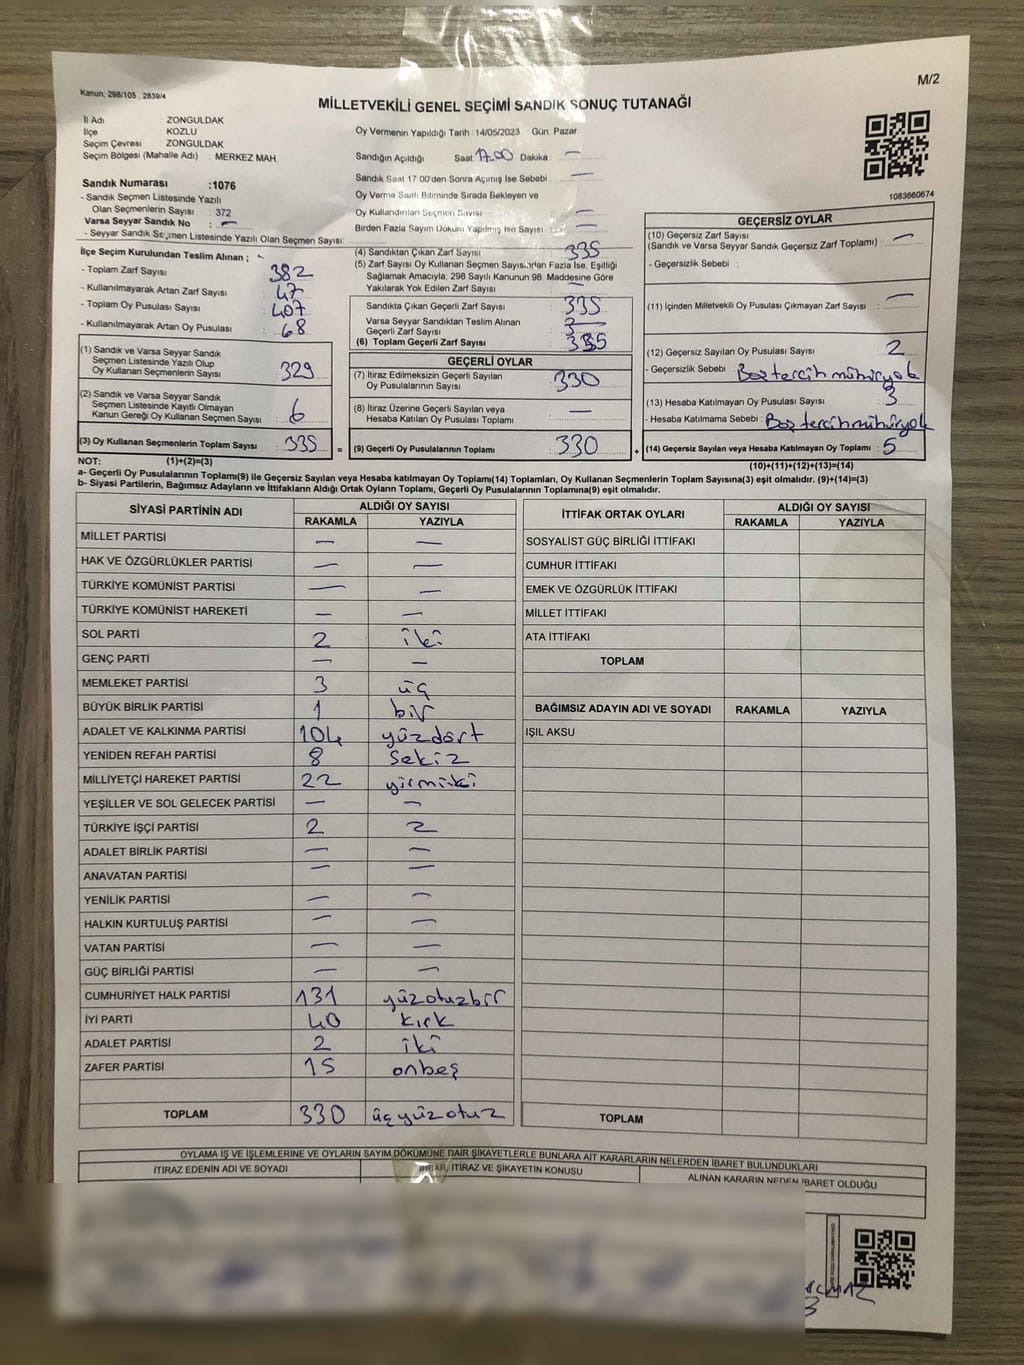 Kanun; 298/105 , 2839/4
M/2
MİLLETVEKİLİ GENEL SEÇİMİ SANDIK SONUÇ TUTANAĞI
İl Adı : ZONGULDAK
İlçe : KOZLU
Seçim Çevresi : ZONGULDAK
Seçim Bölgesi (Mahalle Adı) : MERKEZ MAH.
Sandık Numarası :1076
- Sandık Seçmen Listesinde Yazılı
Olan Seçmenlerin Sayısı : 372
Varsa Seyyar Sandık No : —
- Seyyar Sandık Seçmen Listesinde Yazılı Olan Seçmen Sayısı:
Oy Vermenin Yapıldığı Tarih :14/05/2023 Gün: Pazar
Sandığın Açıldığı Saat: 17.00 Dakika : —
Sandık Saat 17:00'den Sonra Açımış İse Sebebi : —
Oy Verme Saati Bitiminde Sırada Bekleyen ve
Oy Kullandırılan Seçmen Sayısı : —
Birden Fazla Sayım Dökum Yapılmış İse Sayısı : —
1083660674
İlçe Seçim Kurulundan Teslim Alınan ;
- Toplam Zarf Sayısı : 382
- Kullanılmayarak Artan Zarf Sayısı : 47
- Toplam Oy Pusulası Sayısı : 407
- Kullanılmayarak Artan Oy Pusulası : 68
(1) Sandık ve Varsa Seyyar Sandık
Seçmen Listesinde Yazılı Olup
Oy Kullanan Seçmenlerin Sayısı : 329
(2) Sandık ve Varsa Seyyar Sandık
Seçmen Listesinde Kayıtlı Olmayan
Kanun Gereği Oy Kullanan Seçmen Sayısı : 6
(3) Oy Kullanan Seçmenlerin Toplam Sayısı : 335 =
(4) Sandıktan Çıkan Zarf Sayısı : 335
(5) Zarf Sayısı Oy Kullanan Seçmen Sayısından Fazla İse, Eşitliği
Sağlamak Amacıyla, 298 Sayılı Kanunun 98. Maddesine Göre
Yakılarak Yok Edilen Zarf Sayısı : —
Sandıkta Çıkan Geçerli Zarf Sayısı : 335
Varsa Seyyar Sandıktan Teslim Alınan
Geçerli Zarf Sayısı :
(6) Toplam Geçerli Zarf Sayısı : 335
GEÇERLİ OYLAR
(7) İtiraz Edilmeksizin Geçerli Sayılan
Oy Pusulalarının Sayısı : 330
(8) İtiraz Üzerine Geçerli Sayılan veya
Hesaba Katılan Oy Pusulası Toplamı : —
(9) Geçerli Oy Pusulalarının Toplamı : 330 +
GEÇERSİZ OYLAR
(10) Geçersiz Zarf Sayısı
(Sandık ve Varsa Seyyar Sandık Geçersiz Zarf Toplamı) : —
- Geçersizlik Sebebi :
(11) İçinden Milletvekili Oy Pusulası Çıkmayan Zarf Sayısı : —
(12) Geçersiz Sayılan Oy Pusulası Sayısı : 2
- Geçersizlik Sebebi : Boş tercih mühürü yok
(13) Hesaba Katılmayan Oy Pusulası Sayısı : 3
- Hesaba Katılmama Sebebi : Boş tercih mühürü yok
(14) Geçersiz Sayılan veya Hesaba Katılmayan Oy Toplamı : 5
NOT: (1)+(2)=(3)
(10)+(11)+(12)+(13)=(14)
a- Geçerli Oy Pusulalarının Toplamı(9) ile Geçersiz Sayılan veya Hesaba katılmayan Oy Toplamı(14) Toplamları, Oy Kullanan Seçmenlerin Toplam Sayısına(3) eşit olmalıdır. (9)+(14)=(3)
b- Siyasi Partilerin, Bağımsız Adayların ve İttifakların Aldığı Ortak Oyların Toplamı, Geçerli Oy Pusulalarının Toplamına(9) eşit olmalıdır.
SİYASİ PARTİNİN ADI ALDIĞI OY SAYISI
RAKAMLA YAZIYLA
MİLLET PARTİSİ — —
HAK VE ÖZGÜRLÜKLER PARTİSİ — —
TÜRKİYE KOMÜNİST PARTİSİ — —
TÜRKİYE KOMÜNİST HAREKETİ — —
SOL PARTİ 2 iki
GENÇ PARTİ — —
MEMLEKET PARTİSİ 3 üç
BÜYÜK BİRLİK PARTİSİ 1 bir
ADALET VE KALKINMA PARTİSİ 104 yüzdört
YENİDEN REFAH PARTİSİ 8 sekiz
MİLLİYETÇİ HAREKET PARTİSİ 22 yirmiiki
YEŞİLLER VE SOL GELECEK PARTİSİ — —
TÜRKİYE İŞÇİ PARTİSİ 2 2
ADALET BİRLİK PARTİSİ — —
ANAVATAN PARTİSİ — —
YENİLİK PARTİSİ — —
HALKIN KURTULUŞ PARTİSİ — —
VATAN PARTİSİ — —
GÜÇ BİRLİĞİ PARTİSİ — —
CUMHURİYET HALK PARTİSİ 131 yüzotuzbir
İYİ PARTİ 40 kırk
ADALET PARTİSİ 2 iki
ZAFER PARTİSİ 15 onbeş
TOPLAM 330 üçyüzotuz
İTTİFAK ORTAK OYLARI ALDIĞI OY SAYISI
RAKAMLA YAZIYLA
SOSYALİST GÜÇ BİRLİĞİ İTTİFAKI
CUMHUR İTTİFAKI
EMEK VE ÖZGÜRLÜK İTTİFAKI
MİLLET İTTİFAKI
ATA İTTİFAKI
TOPLAM
BAĞIMSIZ ADAYIN ADI VE SOYADI RAKAMLA YAZIYLA
IŞIL AKSU
TOPLAM
OYLAMA İŞ VE İŞLEMLERİNE VE OYLARIN SAYIM DÖKÜMÜNE DAİR ŞİKAYETLERLE BUNLARA AİT KARARLARIN NELERDEN İBARET BULUNDUKLARI
İTİRAZ EDENİN ADI VE SOYADI İHBAR, İTİRAZ VE ŞİKAYETİN KONUSU ALINAN KARARIN NEDEN İBARET OLDUĞU